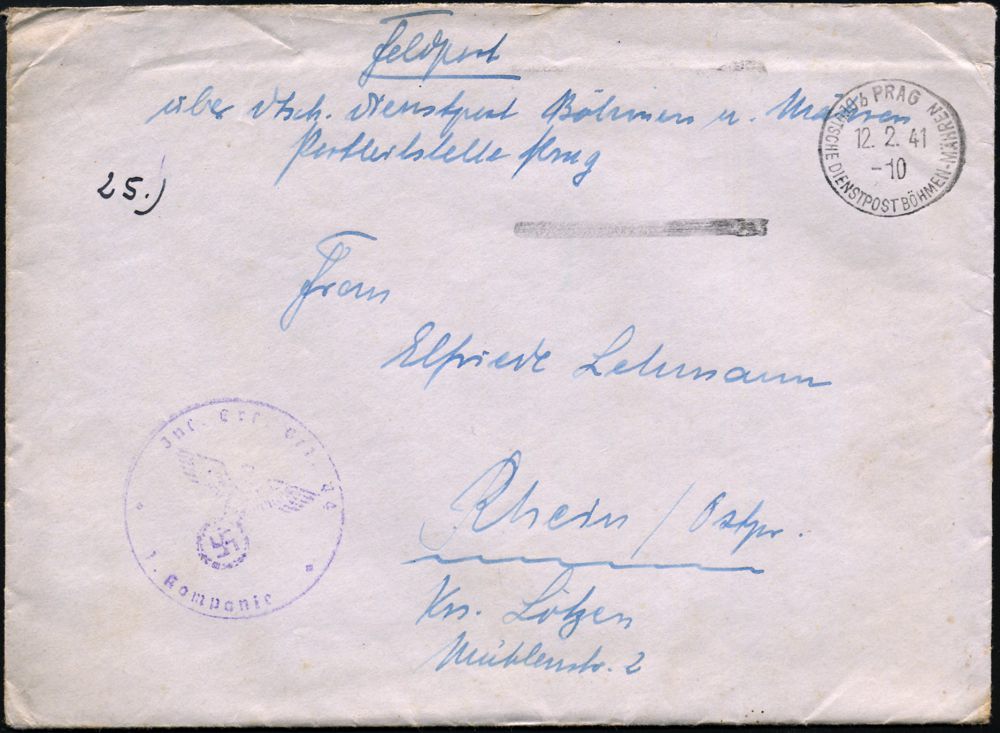 Feldpost
über dtsch. Dienstpost Böhmen u. Mähren
Postleitstelle Prag
PRAG
12. 2. 41
-10
DEUTSCHE DIENSTPOST BÖHMEN-MÄHREN
25.)
Frau
Elfriede Lehmann
Rhein / Ostpr.
Krs. Lötzen
Mühlenstr. 2
Inf. Ers.
1. Kompanie